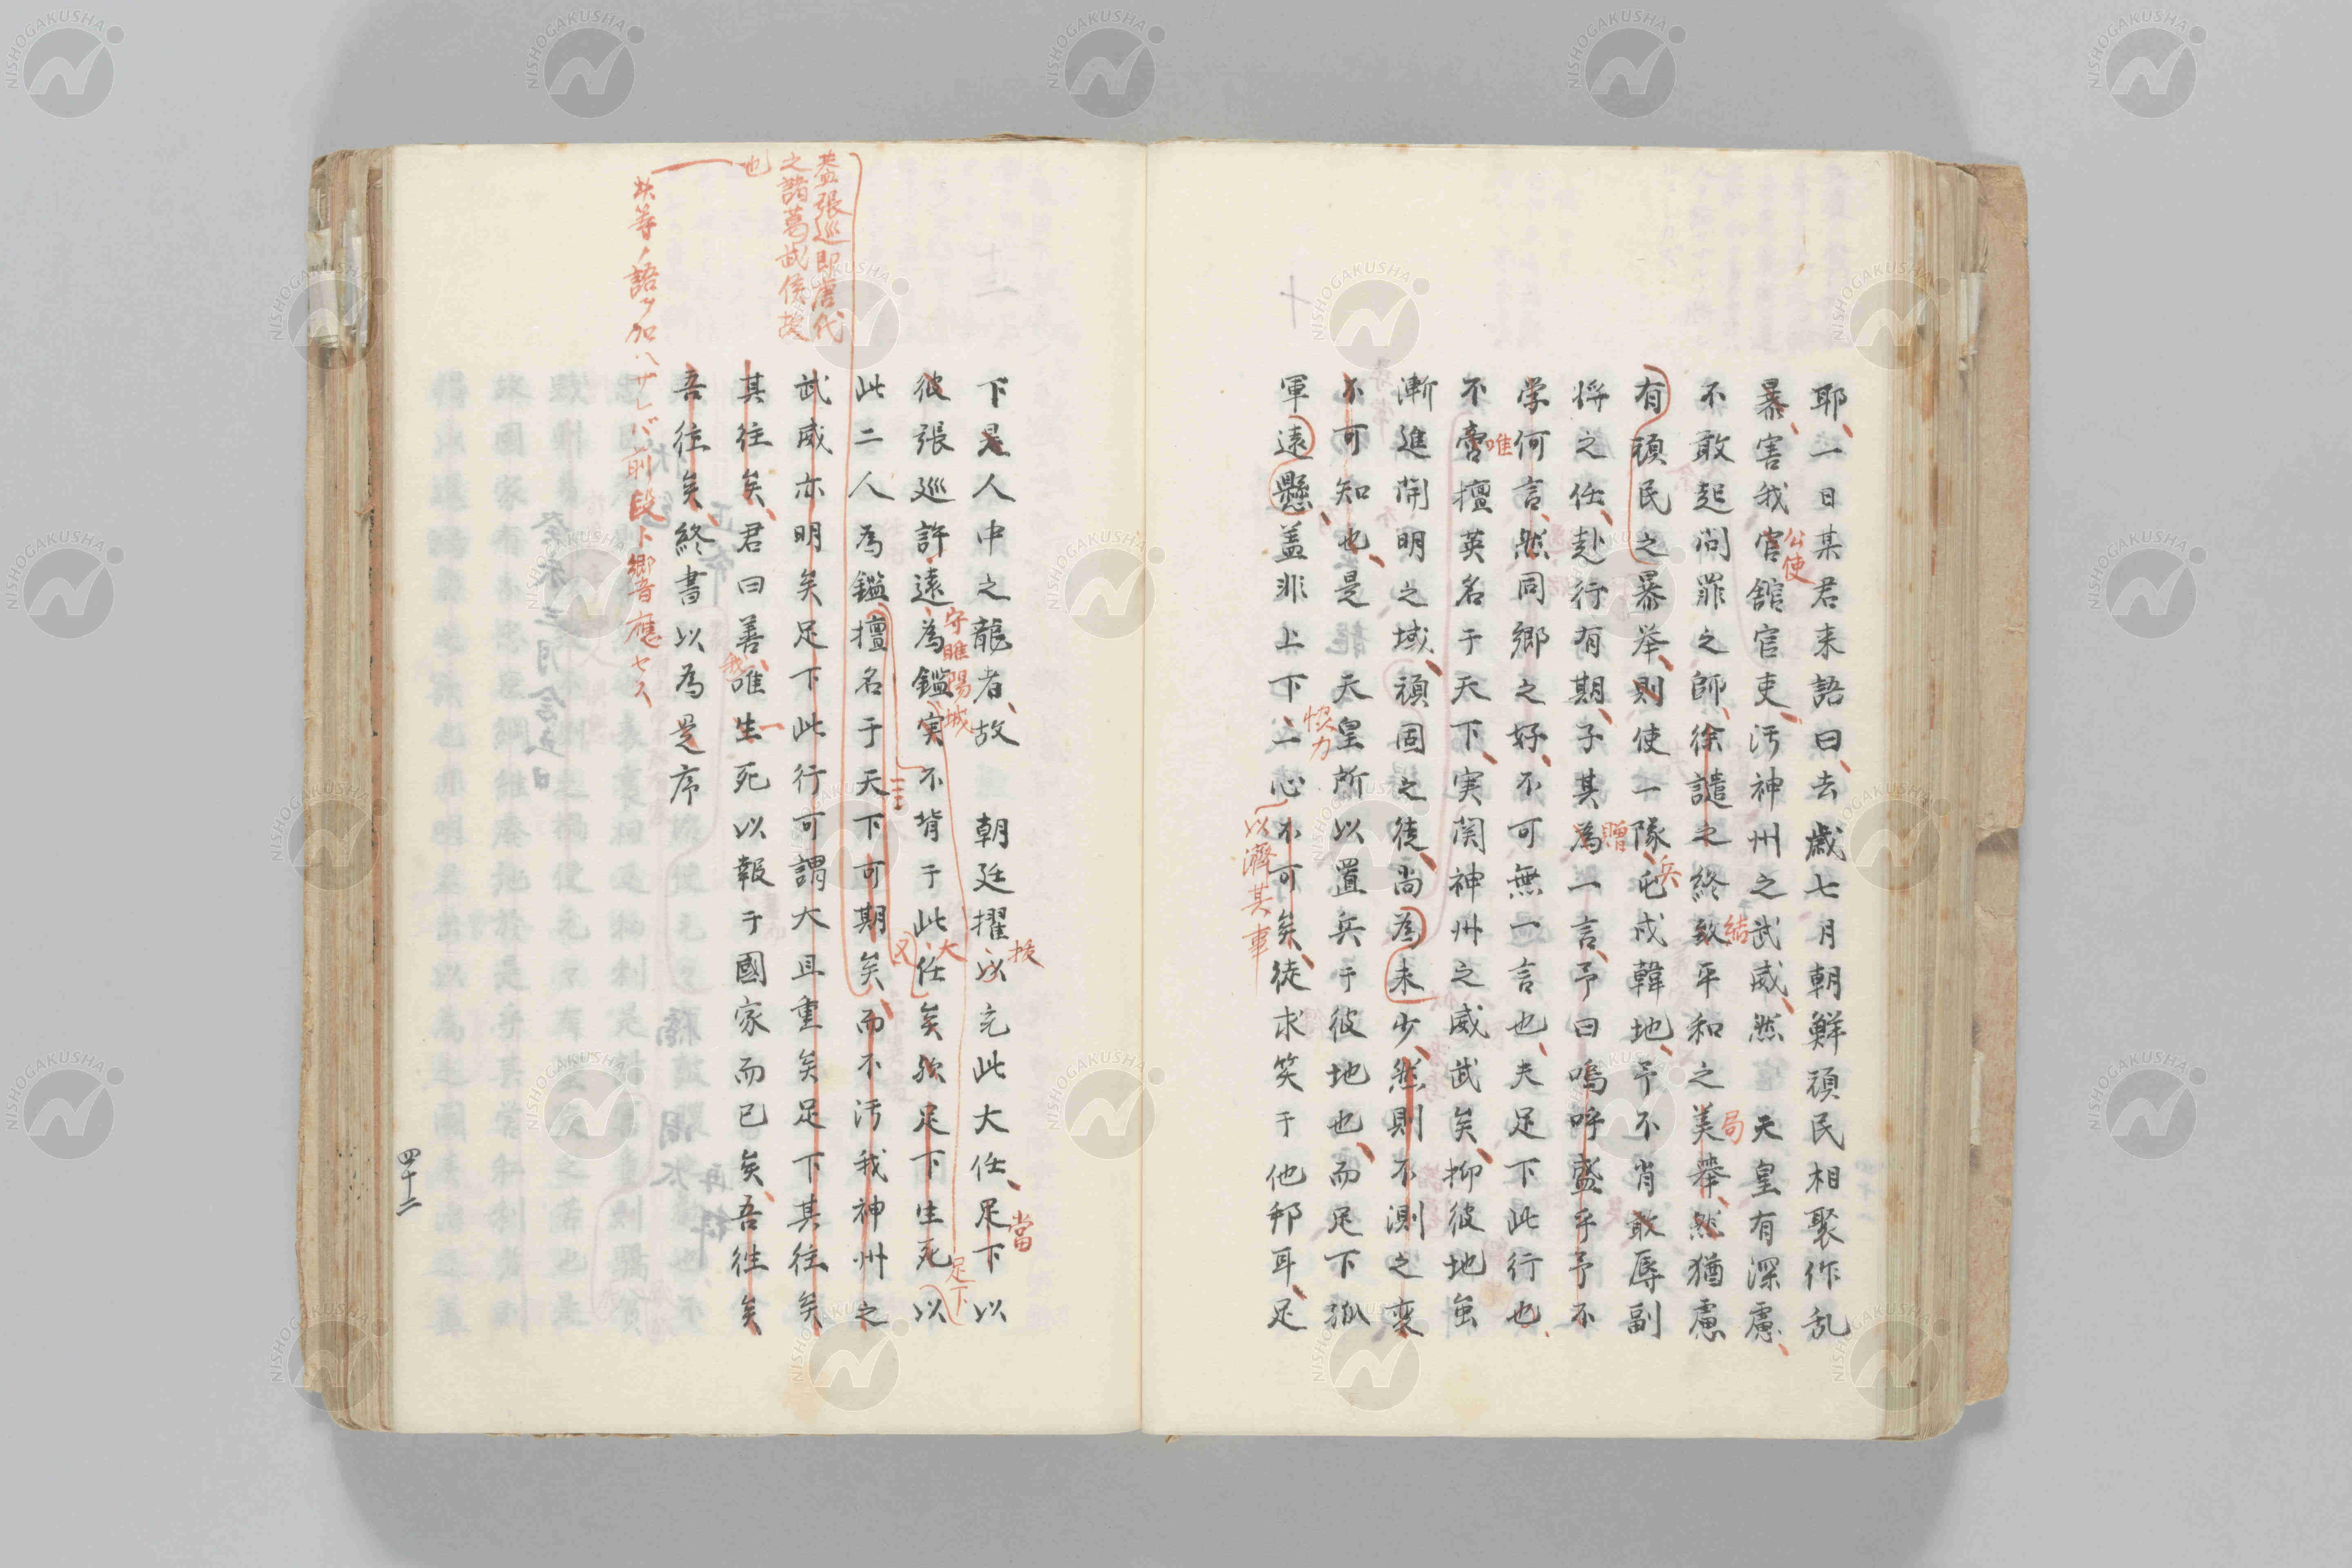 耶一日某君来語曰去歳七月朝鮮頑民相聚作乱
暴害我官舘官吏汚神州之武威然 天皇有深慮
公使
不敢起問罪之師徐譴之終致平和之美舉然猶慮
結
局
有頑民之暴挙則使一隊屯戍韓地予不肖敢辱副
兵
将之任赴行有期子其為一言予曰嗚呼盛乎予不
贈
学何言然同郷之好不可無一言也夫足下此行也
唯
不啻擅英名于天下実関神州之威武矣抑彼地虽
漸進開明之域頑固之徒尚為未少然則不測之変
不可知也是天皇所以置兵于彼地也而足下孤
軍遠懸盖非上下二心不可矣徒求笑于他邦耳足
力
以濟其事
下是人中之龍者故 朝廷擢以充此大任足下以
授
當
彼張巡許遠為鑑実不背于此任矣強足下生死以
守睢陽城
大
足下
此二人為鑑擅名于天下可期矣而不汚我神州之
又
武威亦明矣足下此行可謂大且重矣足下其往矣
其往矣君曰善唯生死以報于國家而已矣吾往矣
我
吾往矣終書以為是序
蓋張巡即唐代
之諸葛武侯
也
此等ノ語ヲ加ハザレバ前段ト響應セス
四十二
NISHOGAKUSHA